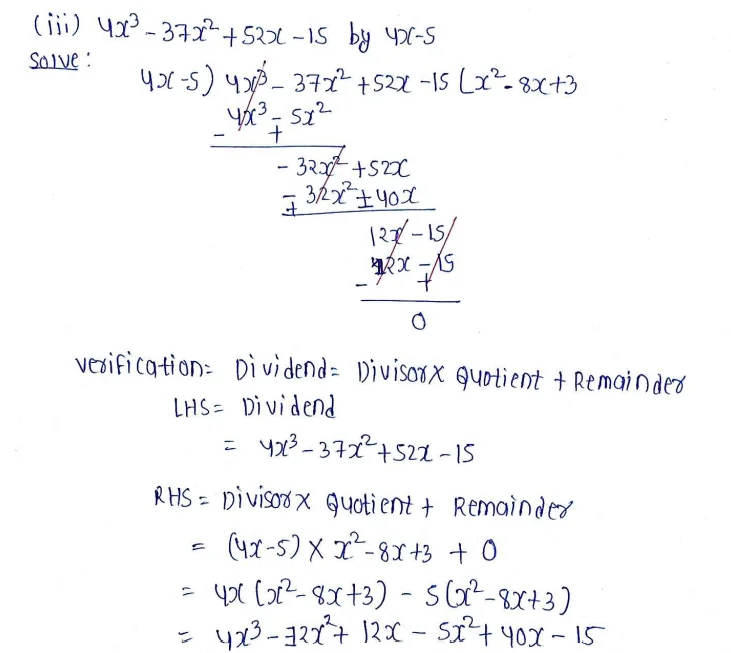 (iii) 4x³ - 37x² + 52x - 15 by 4x-5
Solve:
4x-5) 4x³ - 37x² + 52x - 15 (x² - 8x + 3
4x³ - 5x²
- +
- 32x² + 52x
- 32x² + 40x
+ -
12x - 15
12x - 15
- +
0
verification: Dividend = Divisor x Quotient + Remainder
LHS = Dividend
= 4x³ - 37x² + 52x - 15
RHS = Divisor x Quotient + Remainder
= (4x-5) x x² - 8x + 3 + 0
= 4x (x² - 8x + 3) - 5 (x² - 8x + 3)
= 4x³ - 32x² + 12x - 5x² + 40x - 15